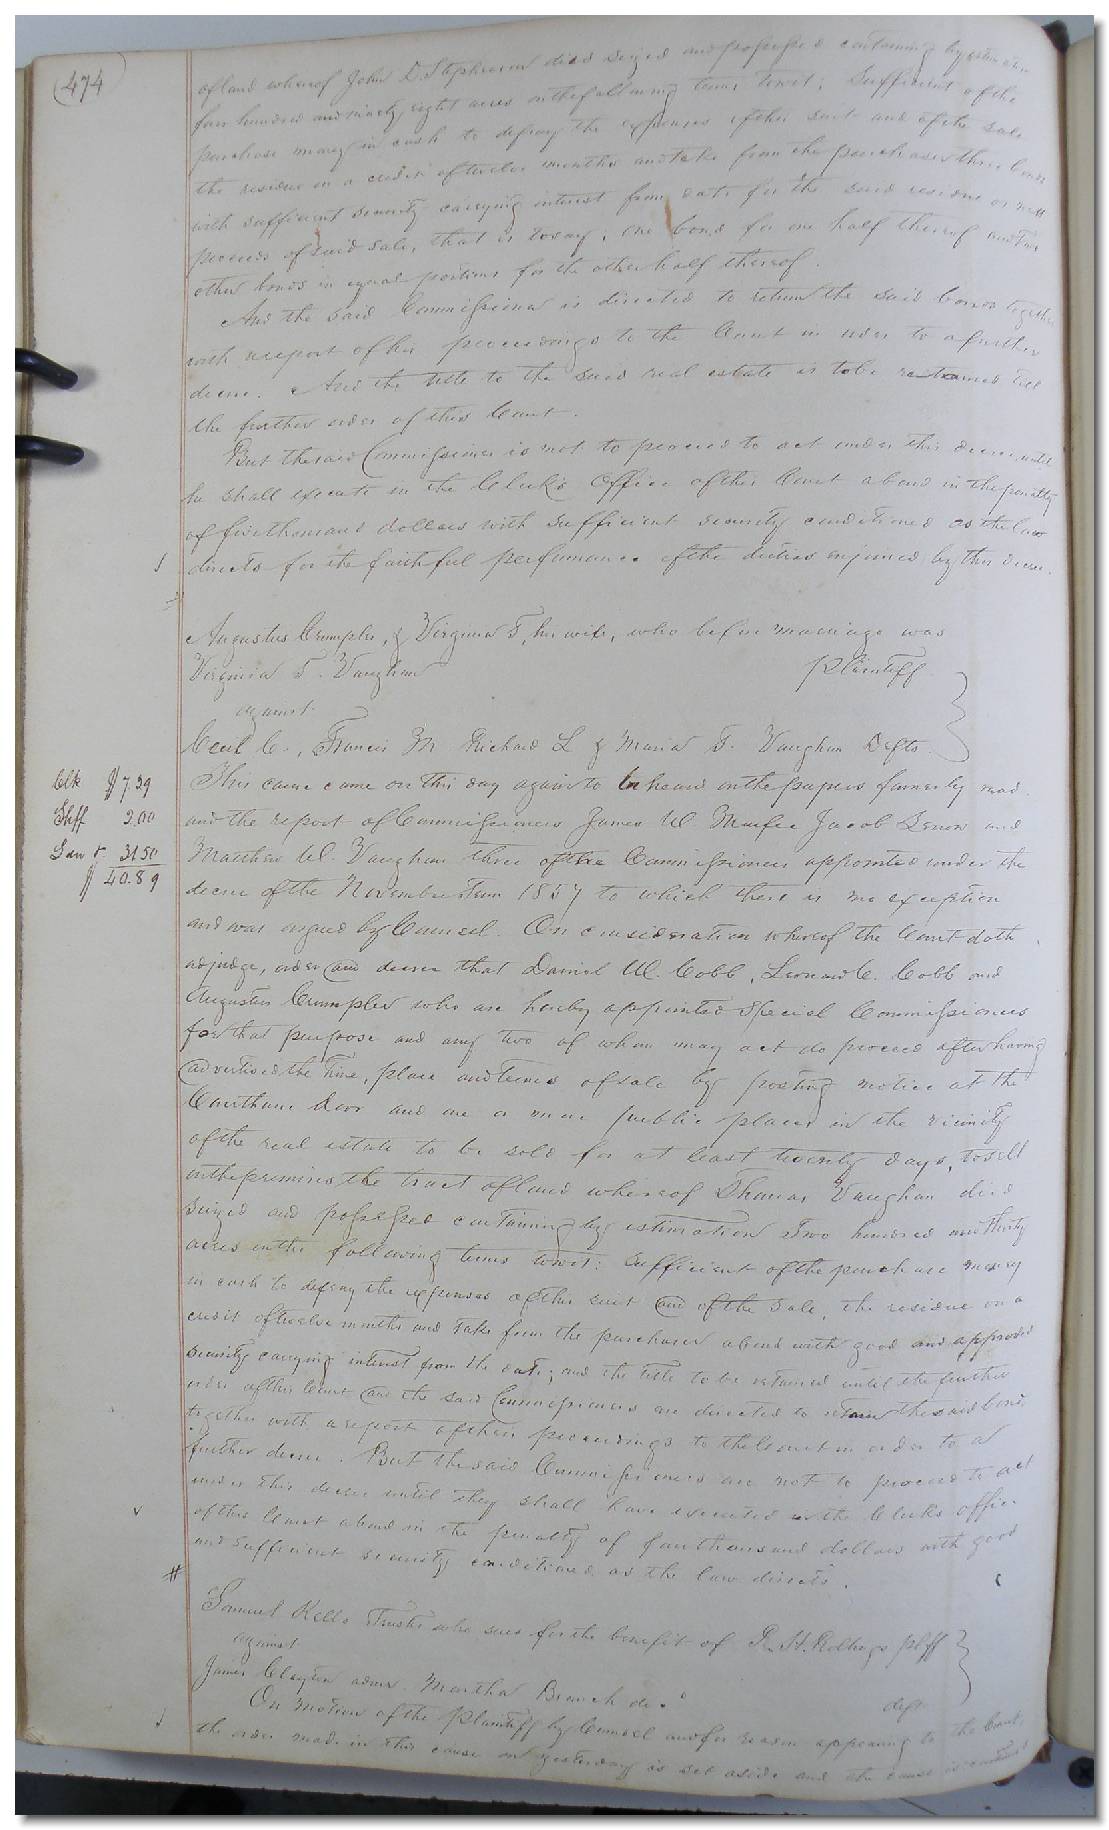 474
of land whereof John D. Stephenson died seized and possessed containing by estimation
four hundred and ninety eight acres on the following terms towit; Sufficient of the
purchase money in cash to defray the expenses of this suit and of the sale
the residue on a credit of twelve months and take from the purchaser three bonds
with sufficient security carrying interest from date for the said residue or nett
proceeds of said sale, that is to say, one bond for one half thereof and two
other bonds in equal portions for the other half thereof.
And the said Commissioner is directed to return the said bonds together
with a report of his proceedings to the Court in order to a further
decree. And the title to the said real estate is to be retained till
the further order of this Court.
But the said Commissioner is not to proceed to act under this decree, until
he shall execute in the Clerk's Office of this Court a bond in the penalty
of five thousand dollars with sufficient security conditioned as the law
directs for the faithful performance of the duties enjoined by this decree.
Augustus Crumpler, & Virginia T, his wife, who before marriage was
Virginia T. Vaughan Plaintiff
against
Cecil C., Francis M Richard L & Maria T. Vaughan Defts.
Clk $7.39
Shff 2.00
31.50
$40.89
This cause came on this day again to be heard on the papers formerly read
and the report of Commissioners James W Jacob and
Matthew W. Vaughan three of the Commissioners appointed under the
decree of the November Term 1857 to which there is no exception
and was argued by Counsel. On consideration whereof the Court doth
adjudge, order and decree that Daniel W. Cobb, Leonard C. Cobb and
Augustus Crumpler who are hereby appointed Special Commissioners
for that purpose and any two of whom may act do proceed after having
advertised the time, place and terms of sale by posting notice at the
Courthouse door and one or more public places in the vicinity
of the real estate to be sold for at least twenty days, to sell
on the premises the tract of land whereof Thomas Vaughan died
seized and possessed containing by estimation Two hundred and thirty
acres on the following terms towit: Sufficient of the purchase money
in cash to defray the expenses of this suit and of the sale, the residue on a
credit of twelve months and take from the purchaser a bond with good and approved
security carrying interest from the date; and the title to be retained until the further
order of this Court and the said Commissioners are directed to return the said bond,
together with a report of their proceedings to the Court in order to a
further decree. But the said Commissioners are not to proceed to act
under this decree until they shall have executed in the Clerks office
of this Court a bond in the penalty of four thousand dollars with good
and sufficient security conditioned as the law directs.
Samuel Kello Trustee who sues for the benefit of R. H. plff
against
James Clayton admr. Martha Branch decd deft
On motion of the Plaintiff by Counsel and for reasons appearing to the Court
the order made in this cause on yesterday is set aside and the cause is